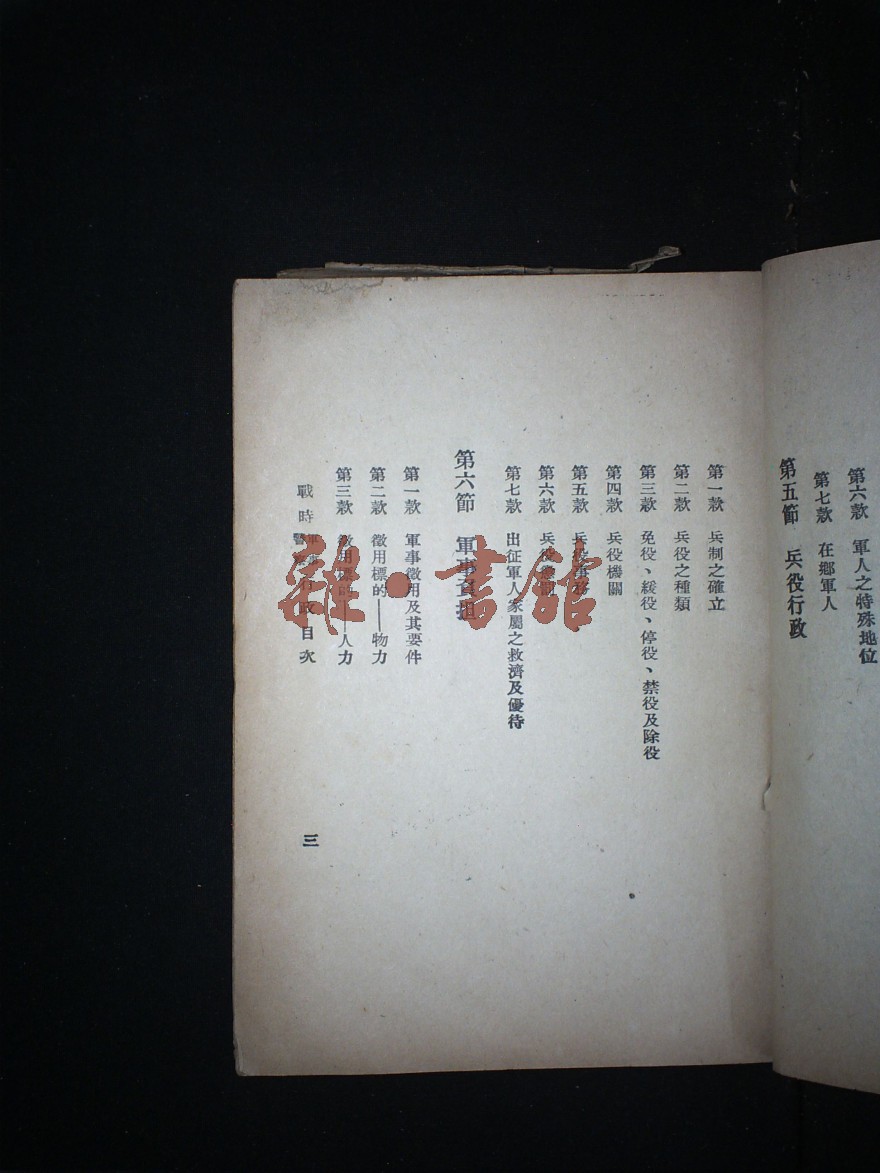 第六款　軍人之特殊地位
第七款　在鄉軍人
第五節　兵役行政
第一款　兵制之確立
第二款　兵役之種類
第三款　免役、緩役、停役、禁役及除役
第四款　兵役機關
第五款　兵役事務
第六款　兵役
第七款　出征軍人家屬之救濟及優待
第六節　軍事負担
第一款　軍事徵用及其要件
第二款　徵用標的——物力
第三款　徵用標的——人力
戰時軍事警察行政目次
三
雜·書館